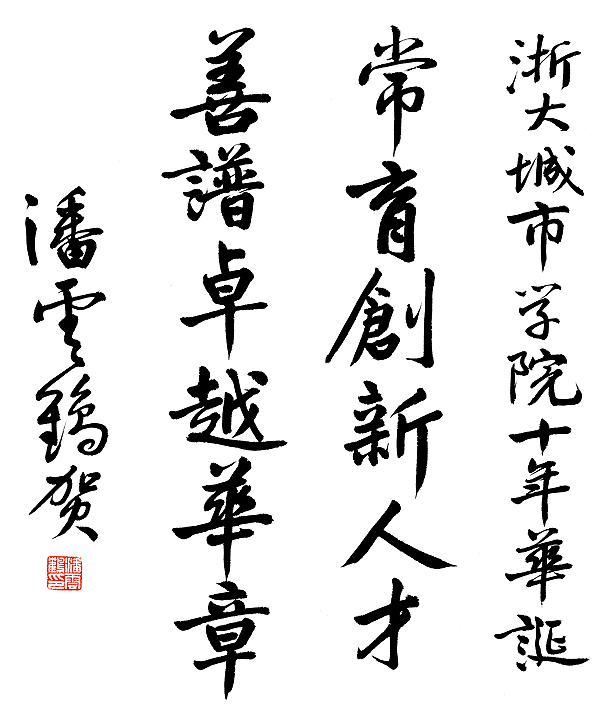 浙大城市学院十年華誕
常育創新人才
善譜卓越華章
潘雲鶴贺
潘雲鶴印